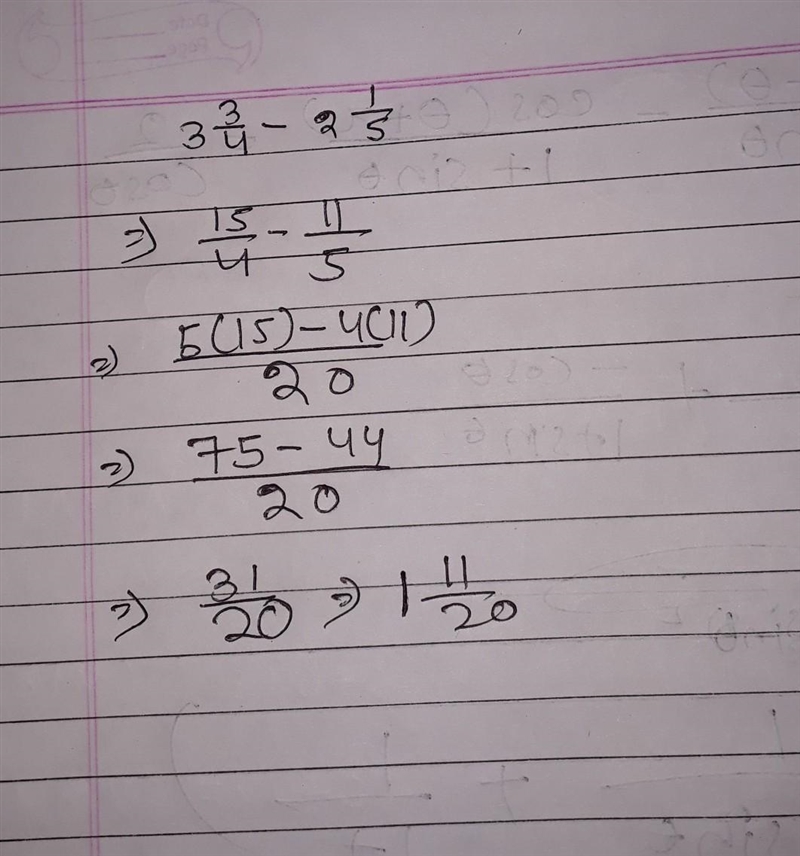 3 3/4 - 2 1/5
⇒ 15/4 - 11/5
⇒ 5(15) - 4(11)/20
⇒ 75 - 44/20
⇒ 31/20 ⇒ 1 11/20